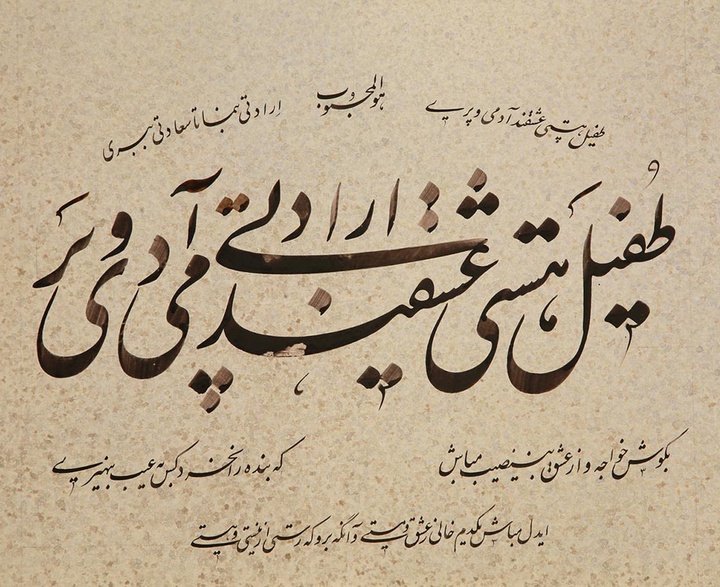 هوالمحبوب
طفیل هستی عشقند آدمی و پری ارادتی بنما تا سعادتی ببری
طفیل هستی عشقند آدمی و پری ارادتی
بکوش خواجه و از عشق بی نصیب مباش که بنده را نخرد کس به عیب بی هنری
ایدل مباش یکدم خالی ز عشق و مستی وآنگه برو که رستی از نیستی و هستی